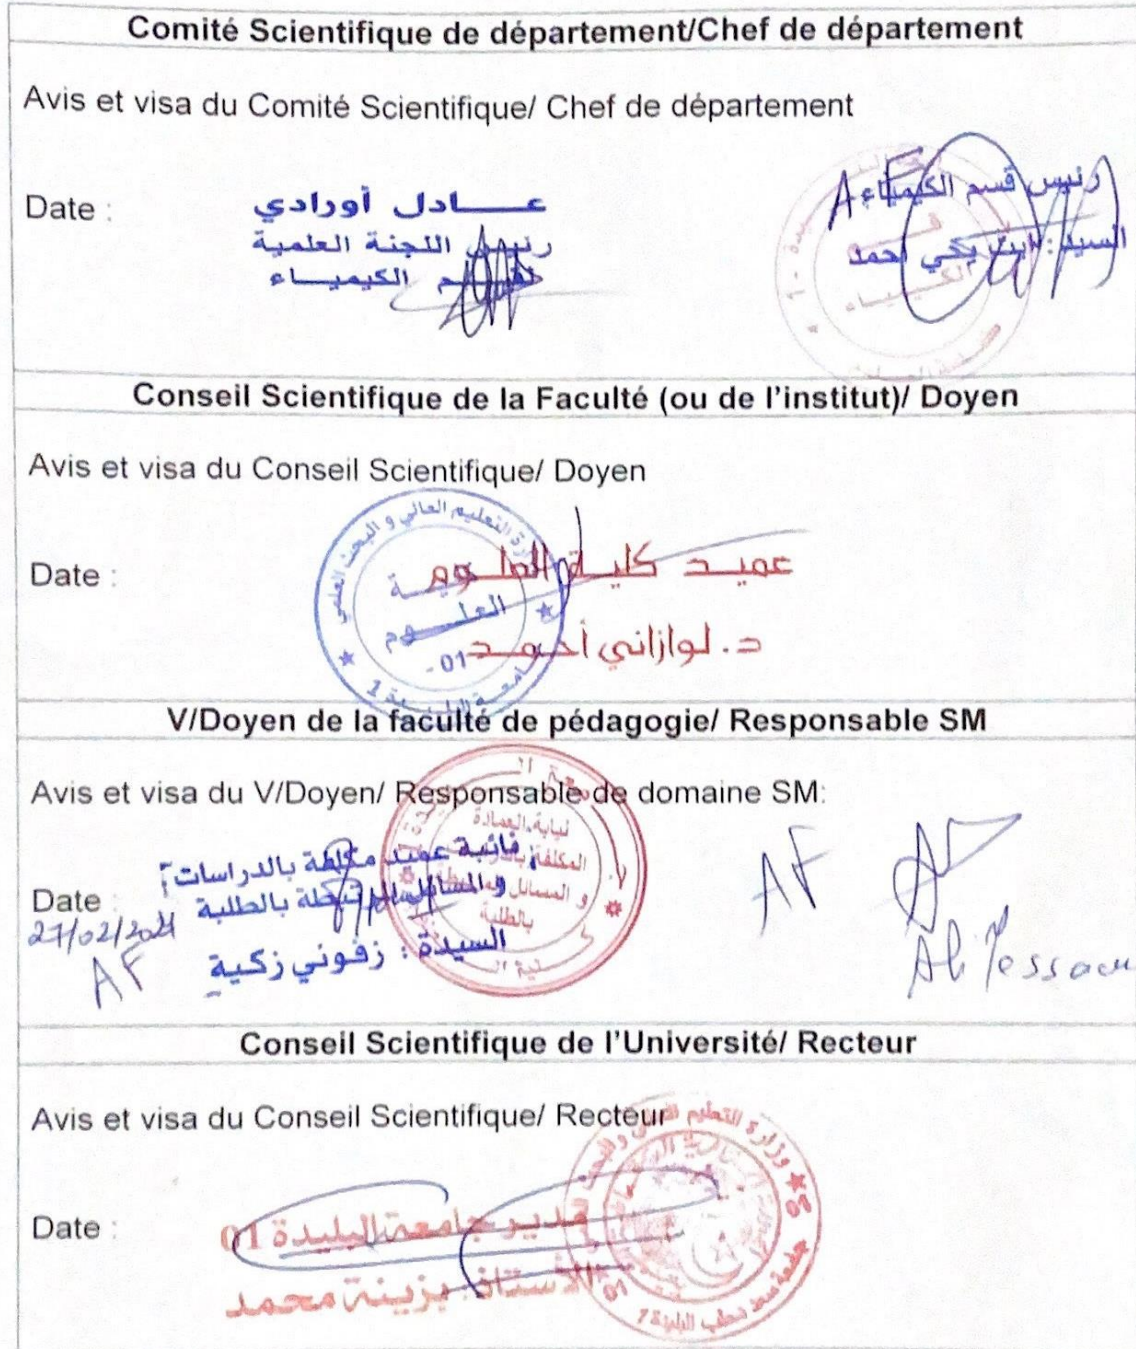 Comité Scientifique de département/Chef de département
Avis et visa du Comité Scientifique/ Chef de département
Date :
عــــــادل أورادي
رئيس اللجنة العلمية
لقسم الكيميــاء
رئيس قسم الكيمياء
السيد: أيت يحي أحمد
Conseil Scientifique de la Faculté (ou de l'institut)/ Doyen
Avis et visa du Conseil Scientifique/ Doyen
Date :
عميــد كليــة العلــوم
د. لوازاني أحمــد
وزارة التعليم العالي و البحث العلمي
العلــــوم
- 01 -
V/Doyen de la faculté de pédagogie/ Responsable SM
Avis et visa du V/Doyen/ Responsable de domaine SM:
Date :
27/02/2024
AF
نيابة العمادة
المكلفة
و المسائل
بالطلبة
نائبة عميد مكلفة بالدراسات
و المسائل المرتبطة بالطلبة
السيدة : زفوني زكية
AF
Conseil Scientifique de l'Université/ Recteur
Avis et visa du Conseil Scientifique/ Recteur
Date :
مدير جامعة البليدة 01
الأستاذ بزينة محمد
وزارة التعليم العالي والبحث
جامعة سعد دحلب البليدة 1